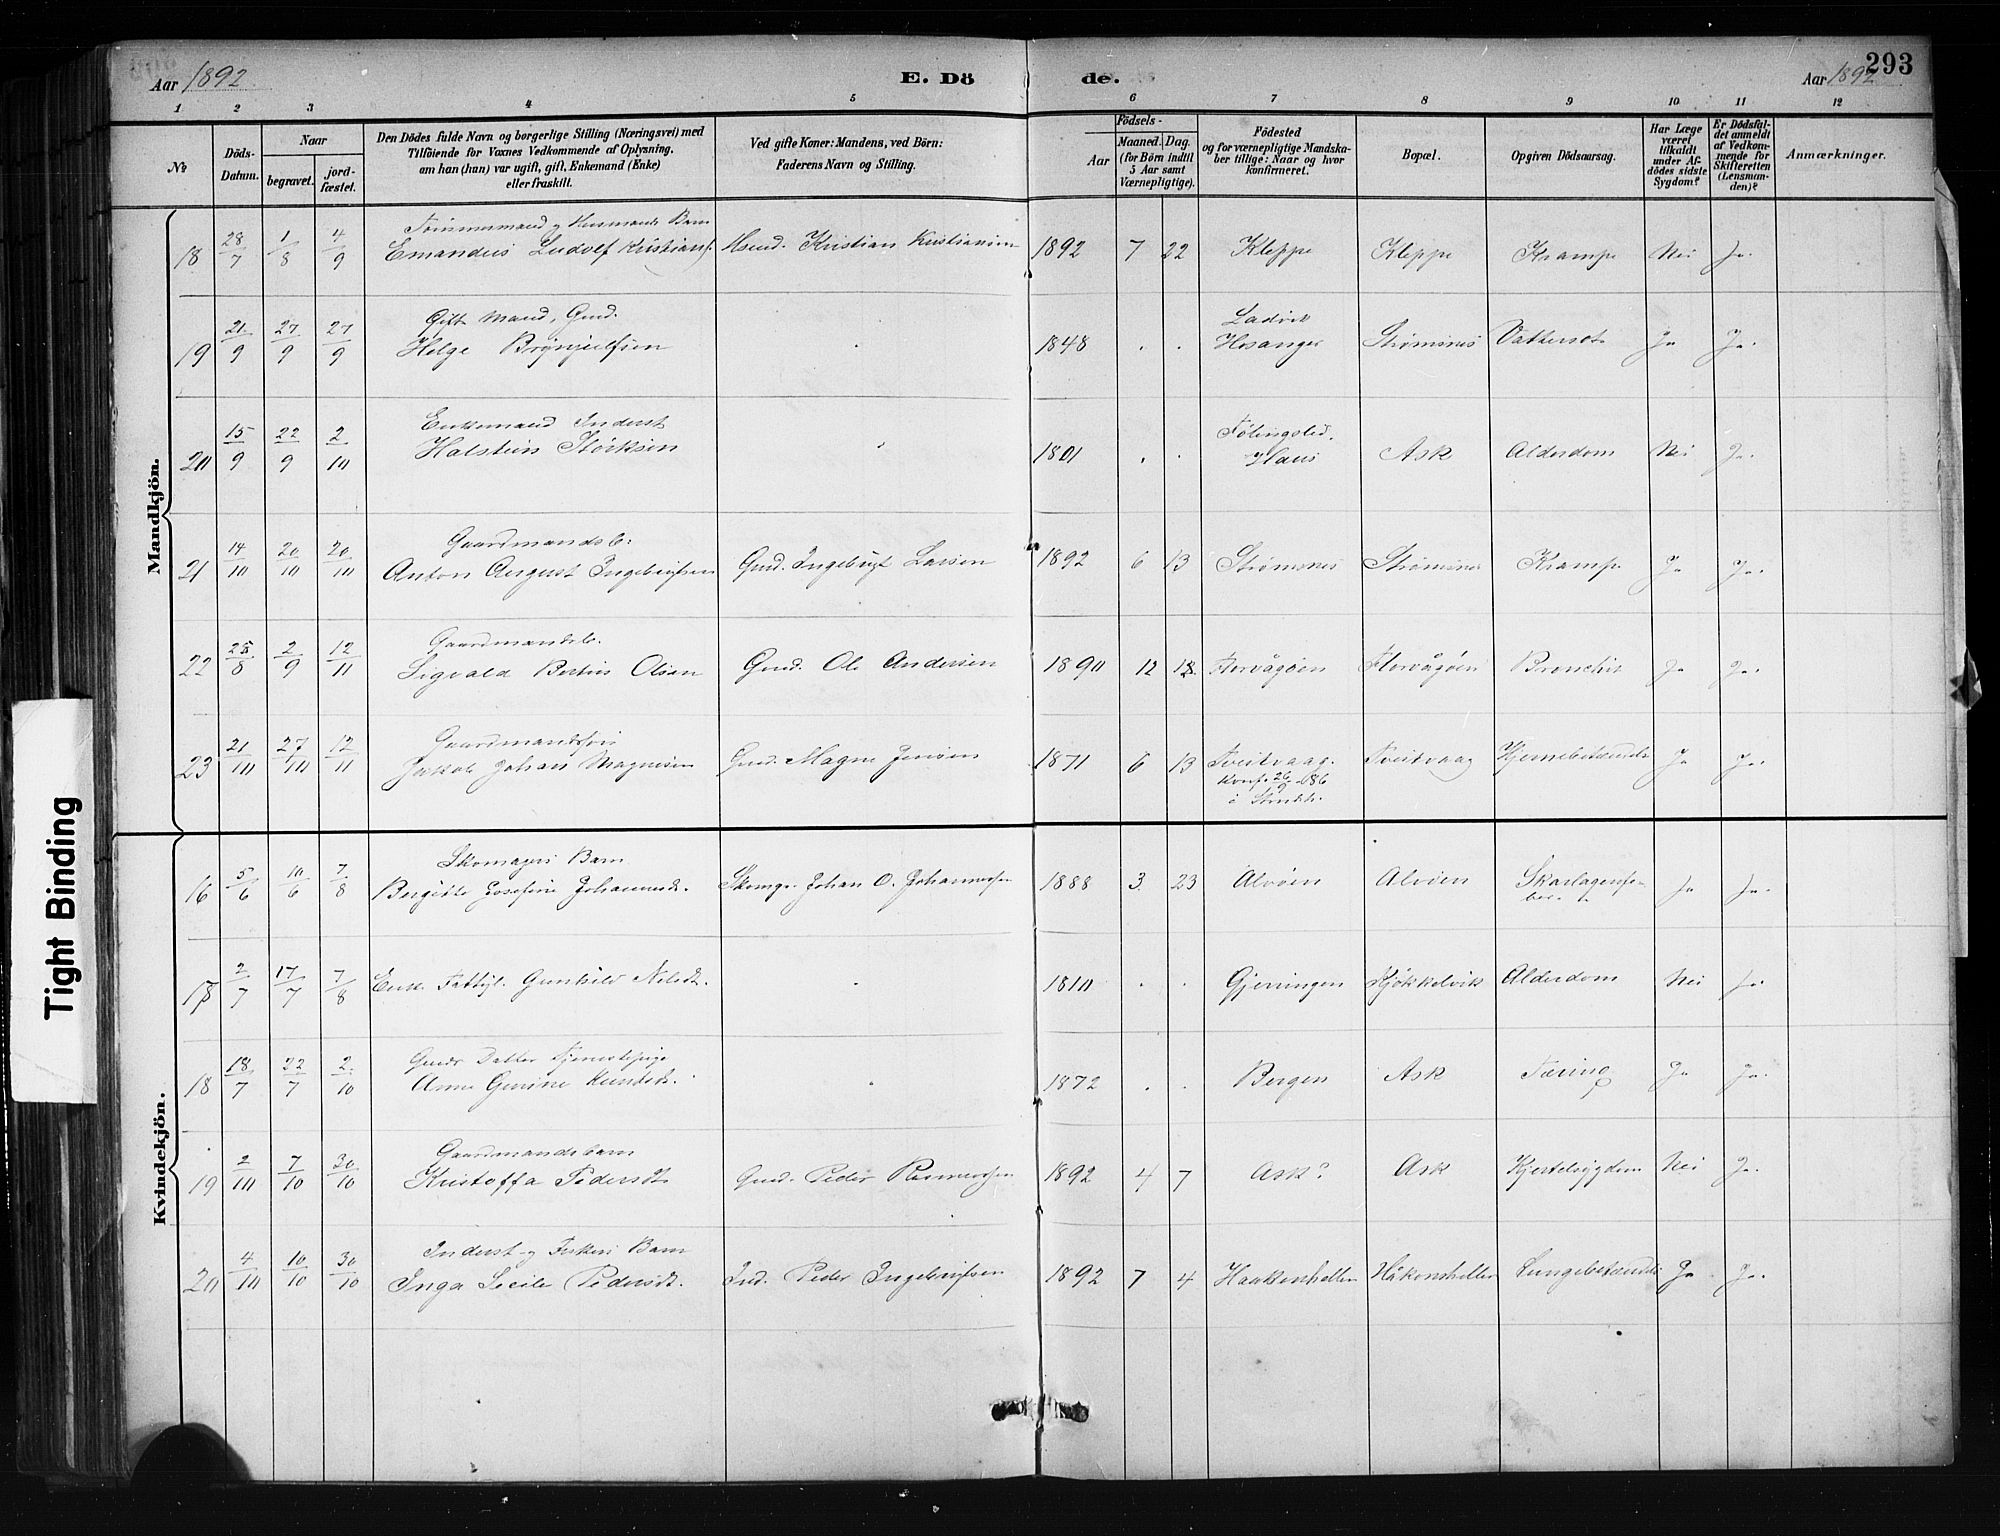 293
Aar 1892
E. Dö
de.
Aar 1892
1 2 3 4 5 6 7 8 9 10 11 12
No
Döds-
Datum.
Naar
begravet.
jord-
fæstet.
Den Dödes fulde Navn og borgerlige Stilling (Næringsvei) med
Tilföiende for Voxnes Vedkommende af Oplysning,
om han (hun) var ugift, gift, Enkemand (Enke)
eller fraskilt.
Ved gifte Koner: Mandens, ved Börn:
Faderens Navn og Stilling.
Födsels-
Aar
Maaned. Dag.
(for Börn indtil
5 Aar samt
Værnepligtige).
Födested
og for værnepligtige Mandska-
ber tillige: Naar og hvor
konfirmeret.
Bopæl.
Opgiven Dödsaarsag.
Har Læge
været
tilkaldt
under Af-
dödes sidste
Sygdom?
Er Dödsfal-
det anmeldt
af Vedkom-
mende for
Skifteretten
(Lensman-
den)?
Anmærkninger.
Mandkjön.
Tømmermand og Husmands Barn
18 28/7 1/8 4/9 Emandus Ludolf Kristians. Hmd. Kristian Kristiansen 1892 7 22 Kleppe Kleppe Krampe Nei Ja.
Gift Mand, Gmd. Ladvik
19 21/9 27/9 27/9 Helge Brynjulfsen 1848 . . Hosanger Strømsnes Vattersot Ja Ja.
Enkemand Inderst
20 15/9 22/9 2/10 Halstein Størksen 1801 . . Haus Ask Alderdom Nei Ja.
Gaardmandsb.
21 14/10 20/10 20/10 Anton August Ingebrigtsen Gmd. Ingebrigt Larsen 1892 6 13 Strømsnes Strømsnes Krampe Ja Ja.
Gaardmandsb.
22 25/8 2/9 12/11 Sigvald Bertius Olsen Gmd. Ole Andersen 1890 12 Florvågøen Florvågøen Bronchit Ja Ja.
Gaardmandssøn
23 21/10 27/10 12/11 Jakob Johan Magnesen Gmd. Magne Jensen 1871 6 13 Tveitvaag. Tveitvaag Hjernebetændelse Ja Ja.
Konf. 26/9 86
i
Kvindekjön.
Skomagers Barn
16 5/6 10/6 7/8 Bergitte Josefine Johannesdt. Skomgr. Johan O. Johannessen 1888 3. 23 Alvøen Alvøen Skarlagensfe-
ber. Ja Ja.
17 2/7 17/7 7/8 Enk. Fattigl. Gunhild Nilsdt. 1810 . . Gjerningen Kjøkkelvik Alderdom Nei Ja.
Gmds Datter Tjenestepige
18 18/7 22/7 2/10 Anne Gurine Knutsdt. 1872 . . Bergen Ask Tæring Ja Ja.
Gaardmandsbarn
19 2/10 7/10 30/10 Kristoffa Pedersdt Gmd. Peder Rasmussen 1892 4 7 Ask? Ask Kjertelsygdom Nei Ja.
Inderst og Fiskers Barn
20 4/10 10/10 30/10 Inga Secile Pedersdt. Ind. Peder Ingebrigtsen 1892 7 4 Haakonshellen Håkonshellen Lungebetændelse Ja Ja.
Tight Binding